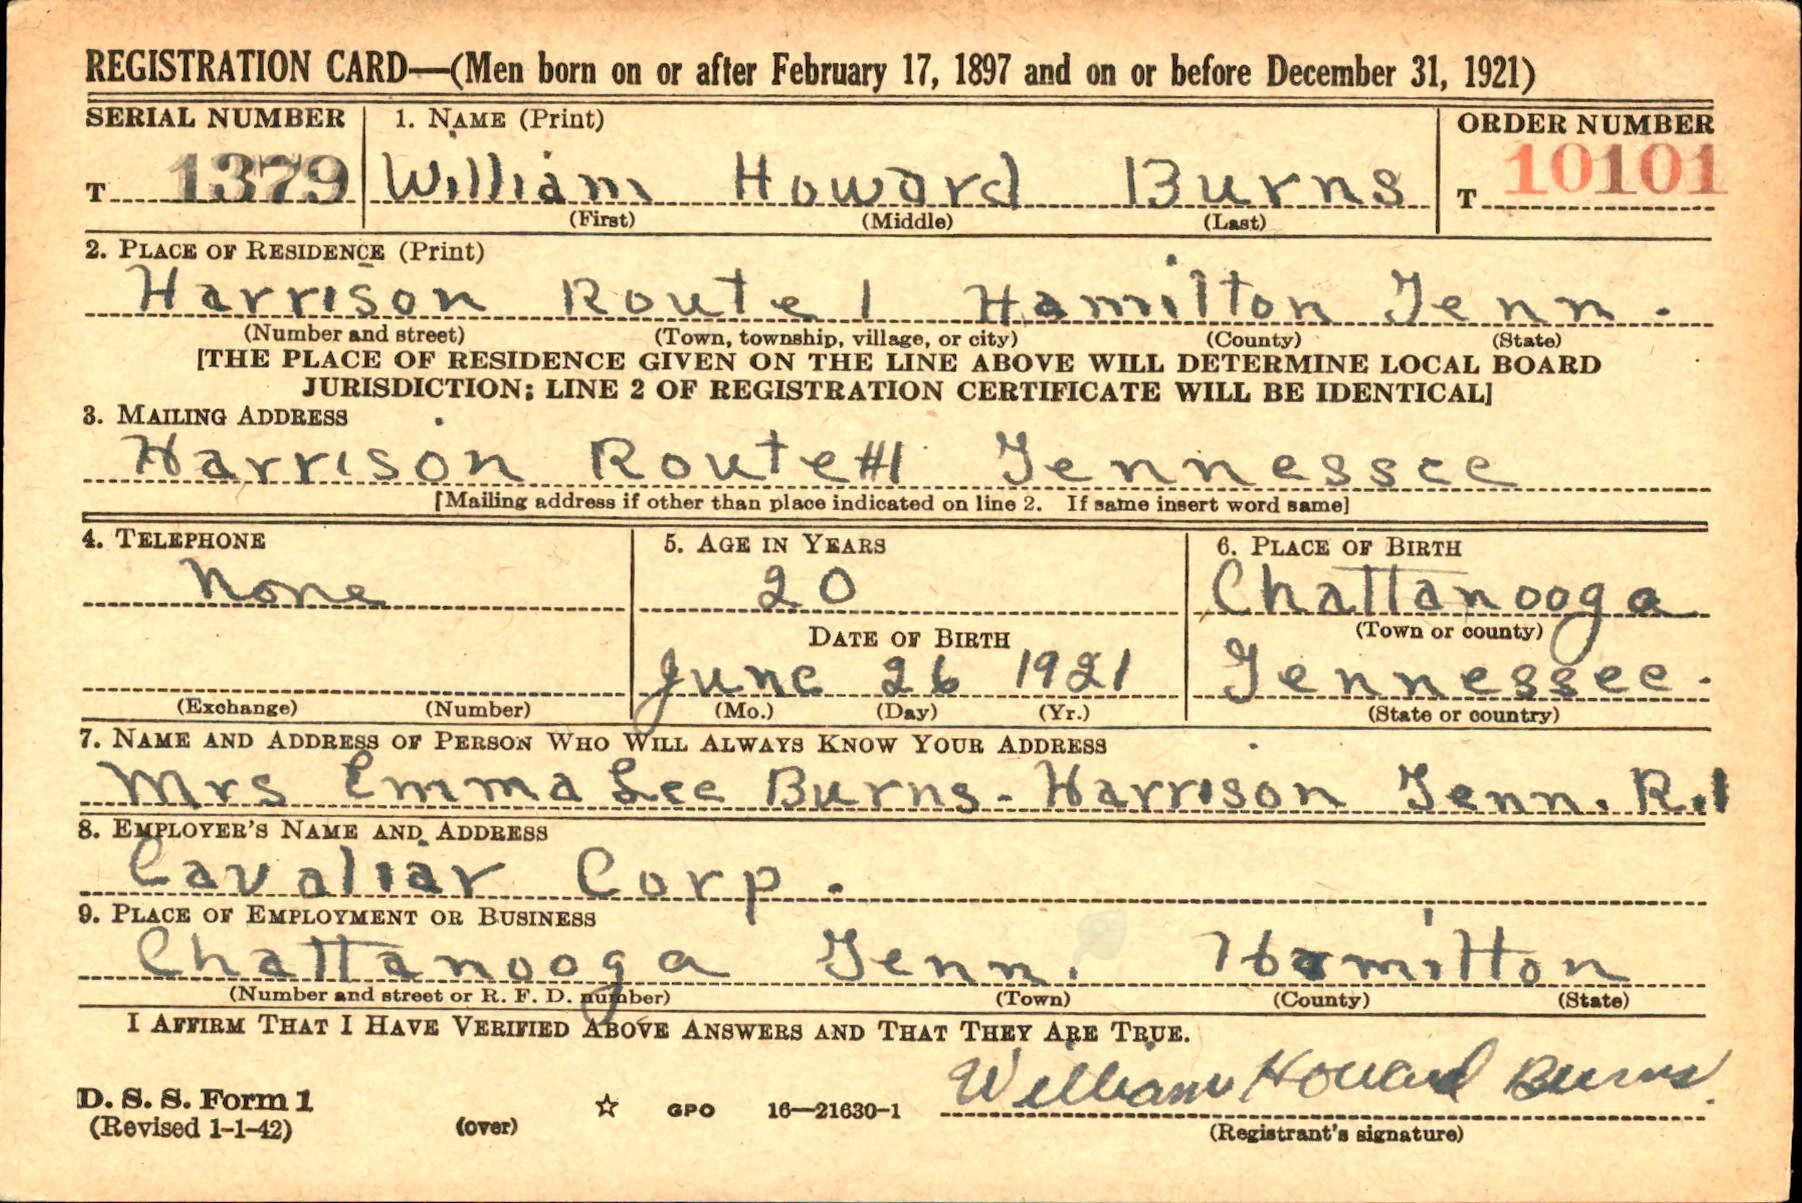 REGISTRATION CARD—(Men born on or after February 17, 1897 and on or before December 31, 1921)
SERIAL NUMBER 1. NAME (Print) ORDER NUMBER
T 1379 William Howard Burns T 10101
(First) (Middle) (Last)
2. PLACE OF RESIDENCE (Print)
Harrison Route 1 Hamilton Tenn.
(Number and street) (Town, township, village, or city) (County) (State)
[THE PLACE OF RESIDENCE GIVEN ON THE LINE ABOVE WILL DETERMINE LOCAL BOARD
JURISDICTION; LINE 2 OF REGISTRATION CERTIFICATE WILL BE IDENTICAL]
3. MAILING ADDRESS
Harrison Route #1 Tennessee
[Mailing address if other than place indicated on line 2. If same insert word same]
4. TELEPHONE 5. AGE IN YEARS 6. PLACE OF BIRTH
None 20 Chattanooga
DATE OF BIRTH (Town or county)
June 26 1921 Tennessee.
(Exchange) (Number) (Mo.) (Day) (Yr.) (State or country)
7. NAME AND ADDRESS OF PERSON WHO WILL ALWAYS KNOW YOUR ADDRESS
Mrs Emma Lee Burns - Harrison Tenn. R.1
8. EMPLOYER'S NAME AND ADDRESS
Cavaliar Corp.
9. PLACE OF EMPLOYMENT OR BUSINESS
Chattanooga Tenn. Hamilton
(Number and street or R. F. D. number) (Town) (County) (State)
I AFFIRM THAT I HAVE VERIFIED ABOVE ANSWERS AND THAT THEY ARE TRUE.
William Howard Burns.
D. S. S. Form 1
(Revised 1-1-42) (over) ☆ GPO 16—21630-1
(Registrant's signature)